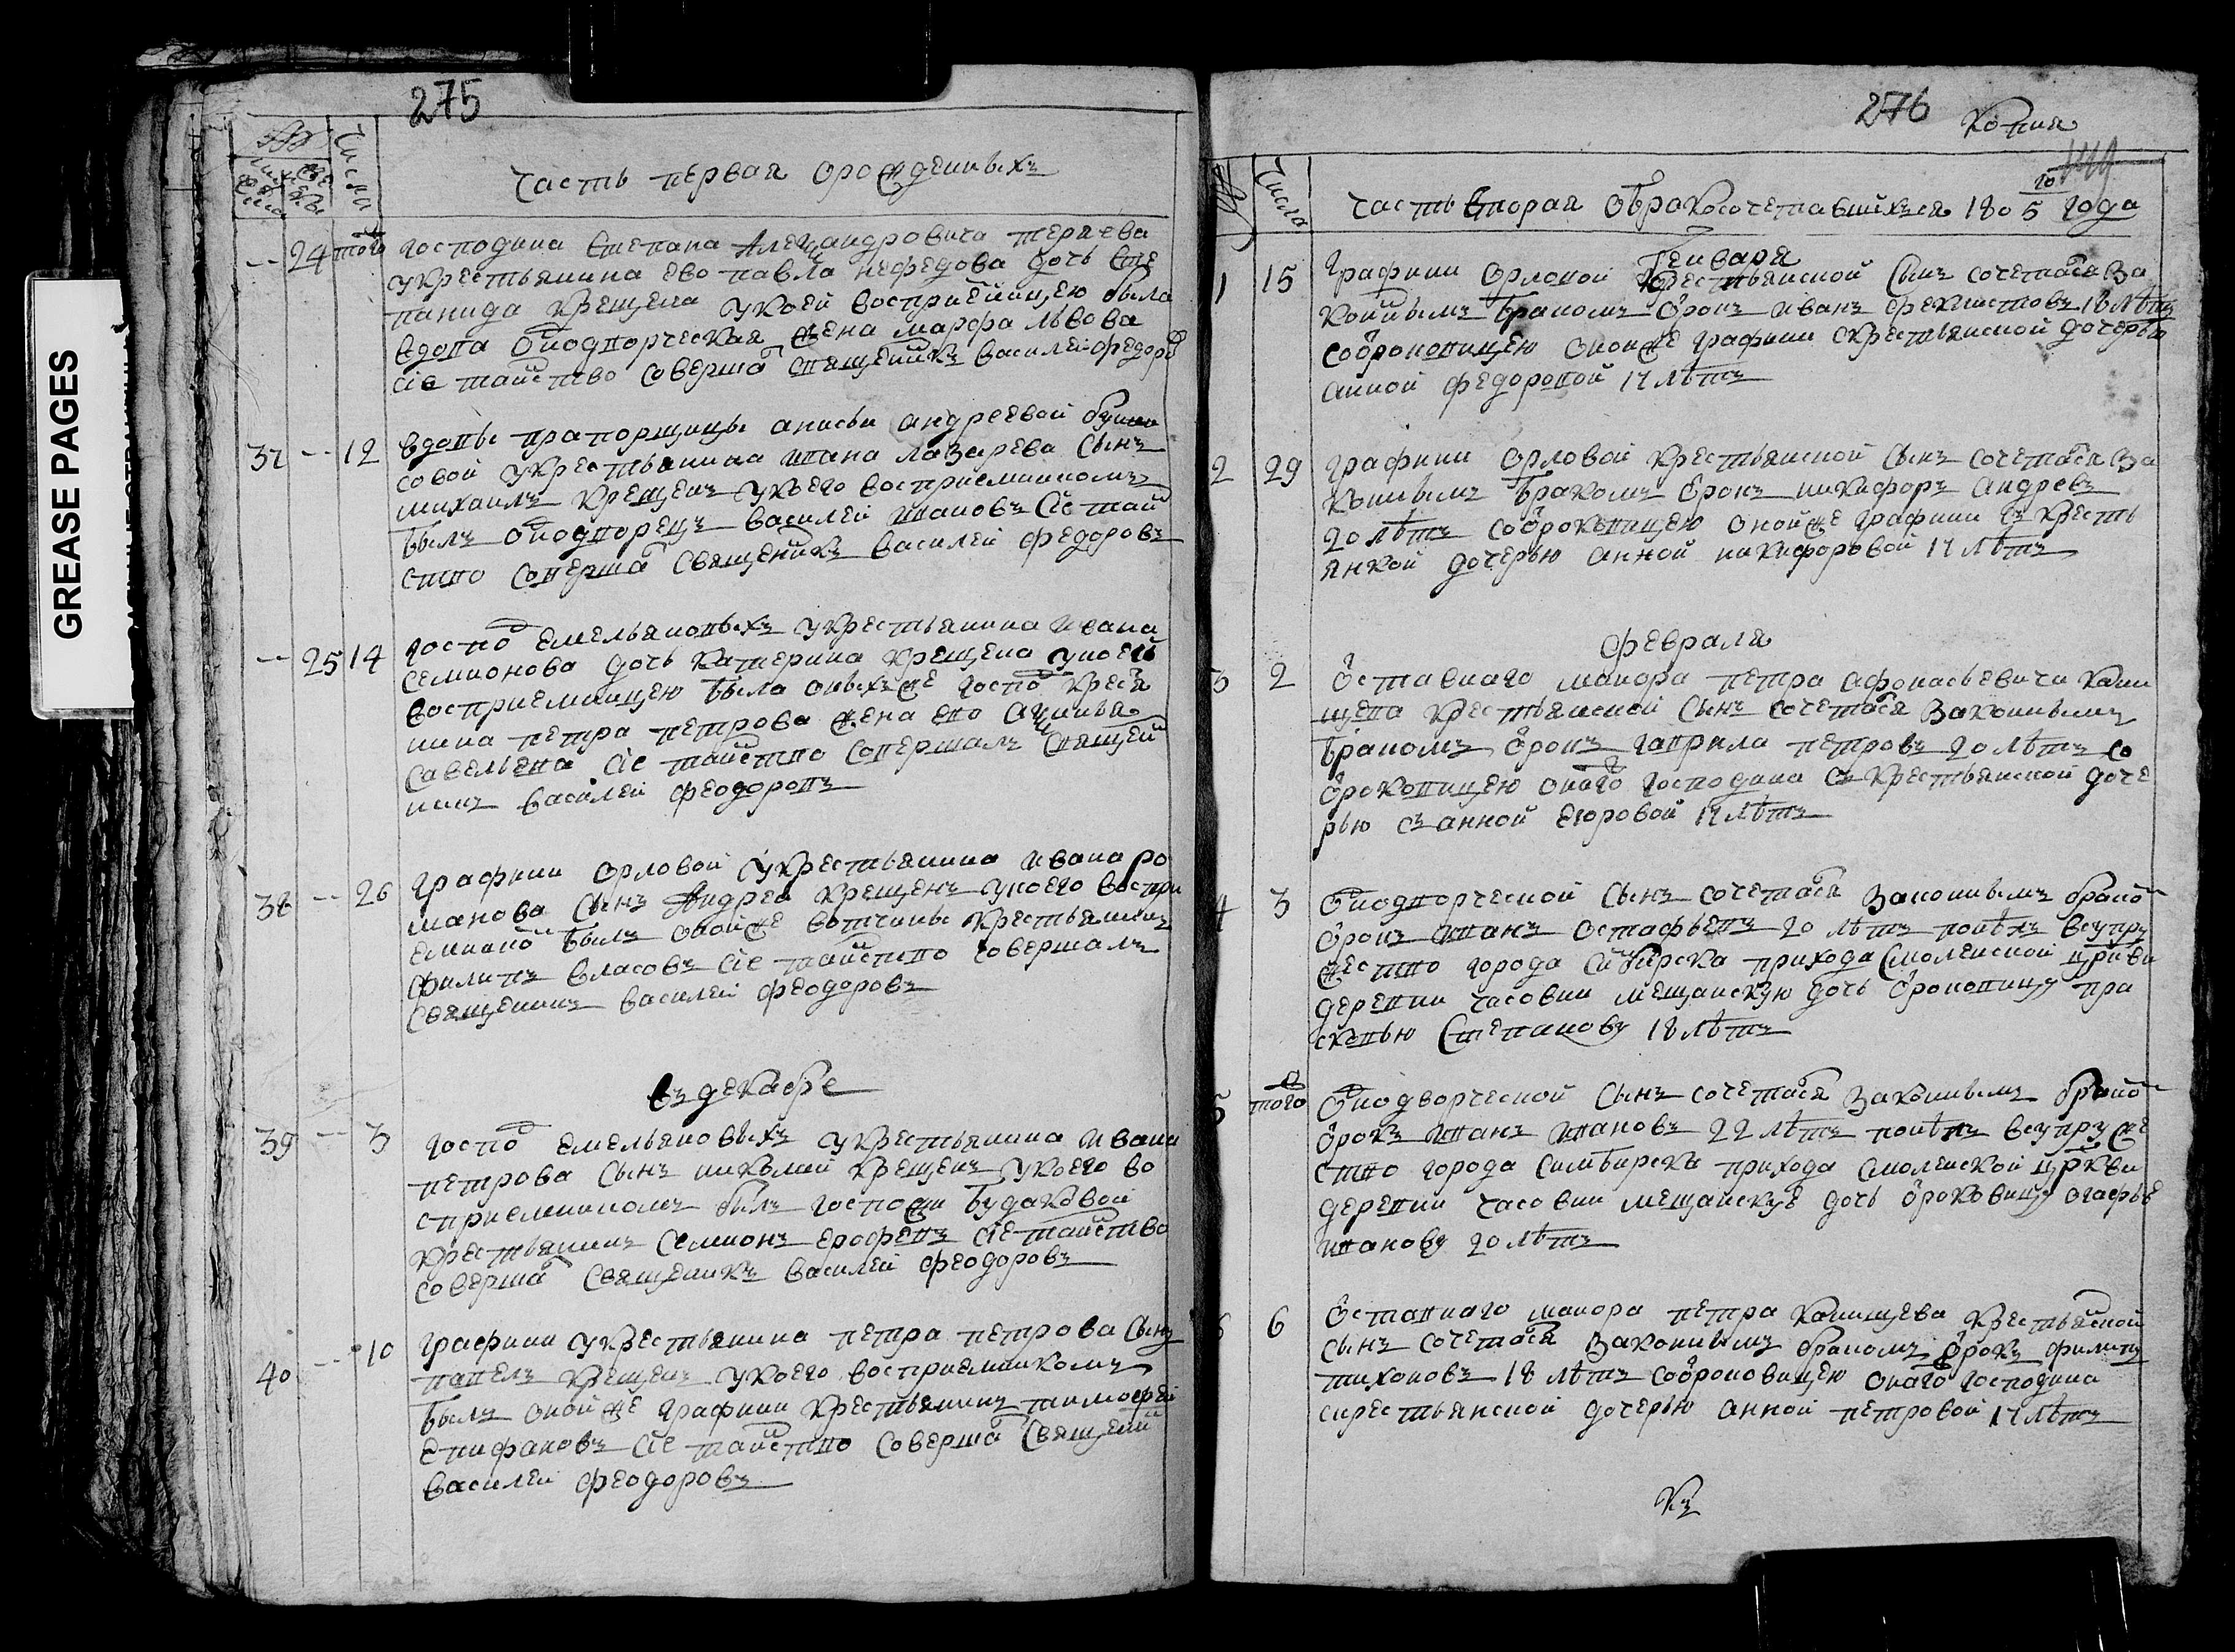 GREASE PAGES
275
Числа
Часть первая орожденныхъ
24 того господина Степана Александровича теряева
укрестьянина ево павла нефедова дочь сте
панида крещена укоей восприемницею была
вдова однодворческая жена марфа львова
сие таинство соверша священникъ василей федоро
37 -- 12 вдовы прапорщицы анисьи андреевой
совой укрестьянина ивана лазарева сынъ
михаилъ крещенъ укоего восприемникомъ
былъ однодворецъ василей ивановъ сие таин
ство соверша священникъ василей федоровъ
-- 25 14 госпо емельяновыхъ укрестьянина ивана
семионова дочь катерина крещена укоей
восприемницею была оныхже госпо крестя
нина петра петрова жена ево аксинья
савельева сие таинство совершалъ священ
никъ василей феодоровъ
38 -- 26 графини орловой укрестьянина ивана ро
манова сынъ андреа крещенъ укоего воспри
емнико былъ онойже вотчины крестьянинъ
филипъ власовъ сие таинство совершалъ
священникъ василей феодоровъ
въ декабре
39 -- 3 госпо емельяновыхъ укрестьянина ивана
петрова сынъ николай крещенъ укоего во
сприемникомъ былъ госпожи будаковой
крестьянинъ семионъ ерофеевъ сие таинство
соверша священникъ василей феодоровъ
40 -- 10 графини укрестьянина петра петрова сынъ
павелъ крещенъ укоего восприемникомъ
былъ онойже графини крестьянинъ тимофей
епифановъ сие таинство соверша священи
василей феодоровъ
276 Копия
Числа
Часть вторая обракосочетавшихъся 1805 года
Генваря
1 15 графини орловой крестьянской сынъ сочетася за
коннымъ бракомъ отрокъ иванъ феклистовъ 18 лѣтъ
сотроковицею оноиже графини скрестьянской дочерью
анной федоровой 17 лѣтъ
2 29 графини орловой крестьянской сынъ сочетася за
коннымъ бракомъ отрокъ никифоръ андревъ
20 лѣтъ сотроковицею онойже графини съ кресть
янкой дочерью анной никифоровой 17 лѣтъ
февраля
3 2 отставнаго маиора петра афонасьевича кани
щева крестьянской сынъ сочетася законнымъ
бракомъ отрокъ гаврила петровъ 20 лѣтъ со
отроковицею онаго господина съ крестьянской доче
рью съ анной еюровой 17 лѣтъ
4 3 однодворческой сынъ сочетася законнымъ брако
отрокъ иванъ остафьевъ 20 лѣтъ поялъ всупру
жество города симбирска прихода смоленской цркви
деревни часовни мещанскую дочь отроковицу пра
сковью степанову 18 лѣтъ
5 того однодворческой сынъ сочетася законнымъ брако
отрокъ иванъ ивановъ 22 лѣтъ поялъ всупруже
ство города симбирска прихода смоленской цркви
деревни часовни мещанскуе дочь отроковицу огафье
иванову 20 лѣтъ
6 6 отставнаго маиора петра канищева крестьянской
сынъ сочетася законнымъ бракомъ отрокъ филипъ
тихоновъ 18 лѣтъ сотроковицею онаго господина
скрестьянской дочерью анной петровой 17 лѣтъ
Къ